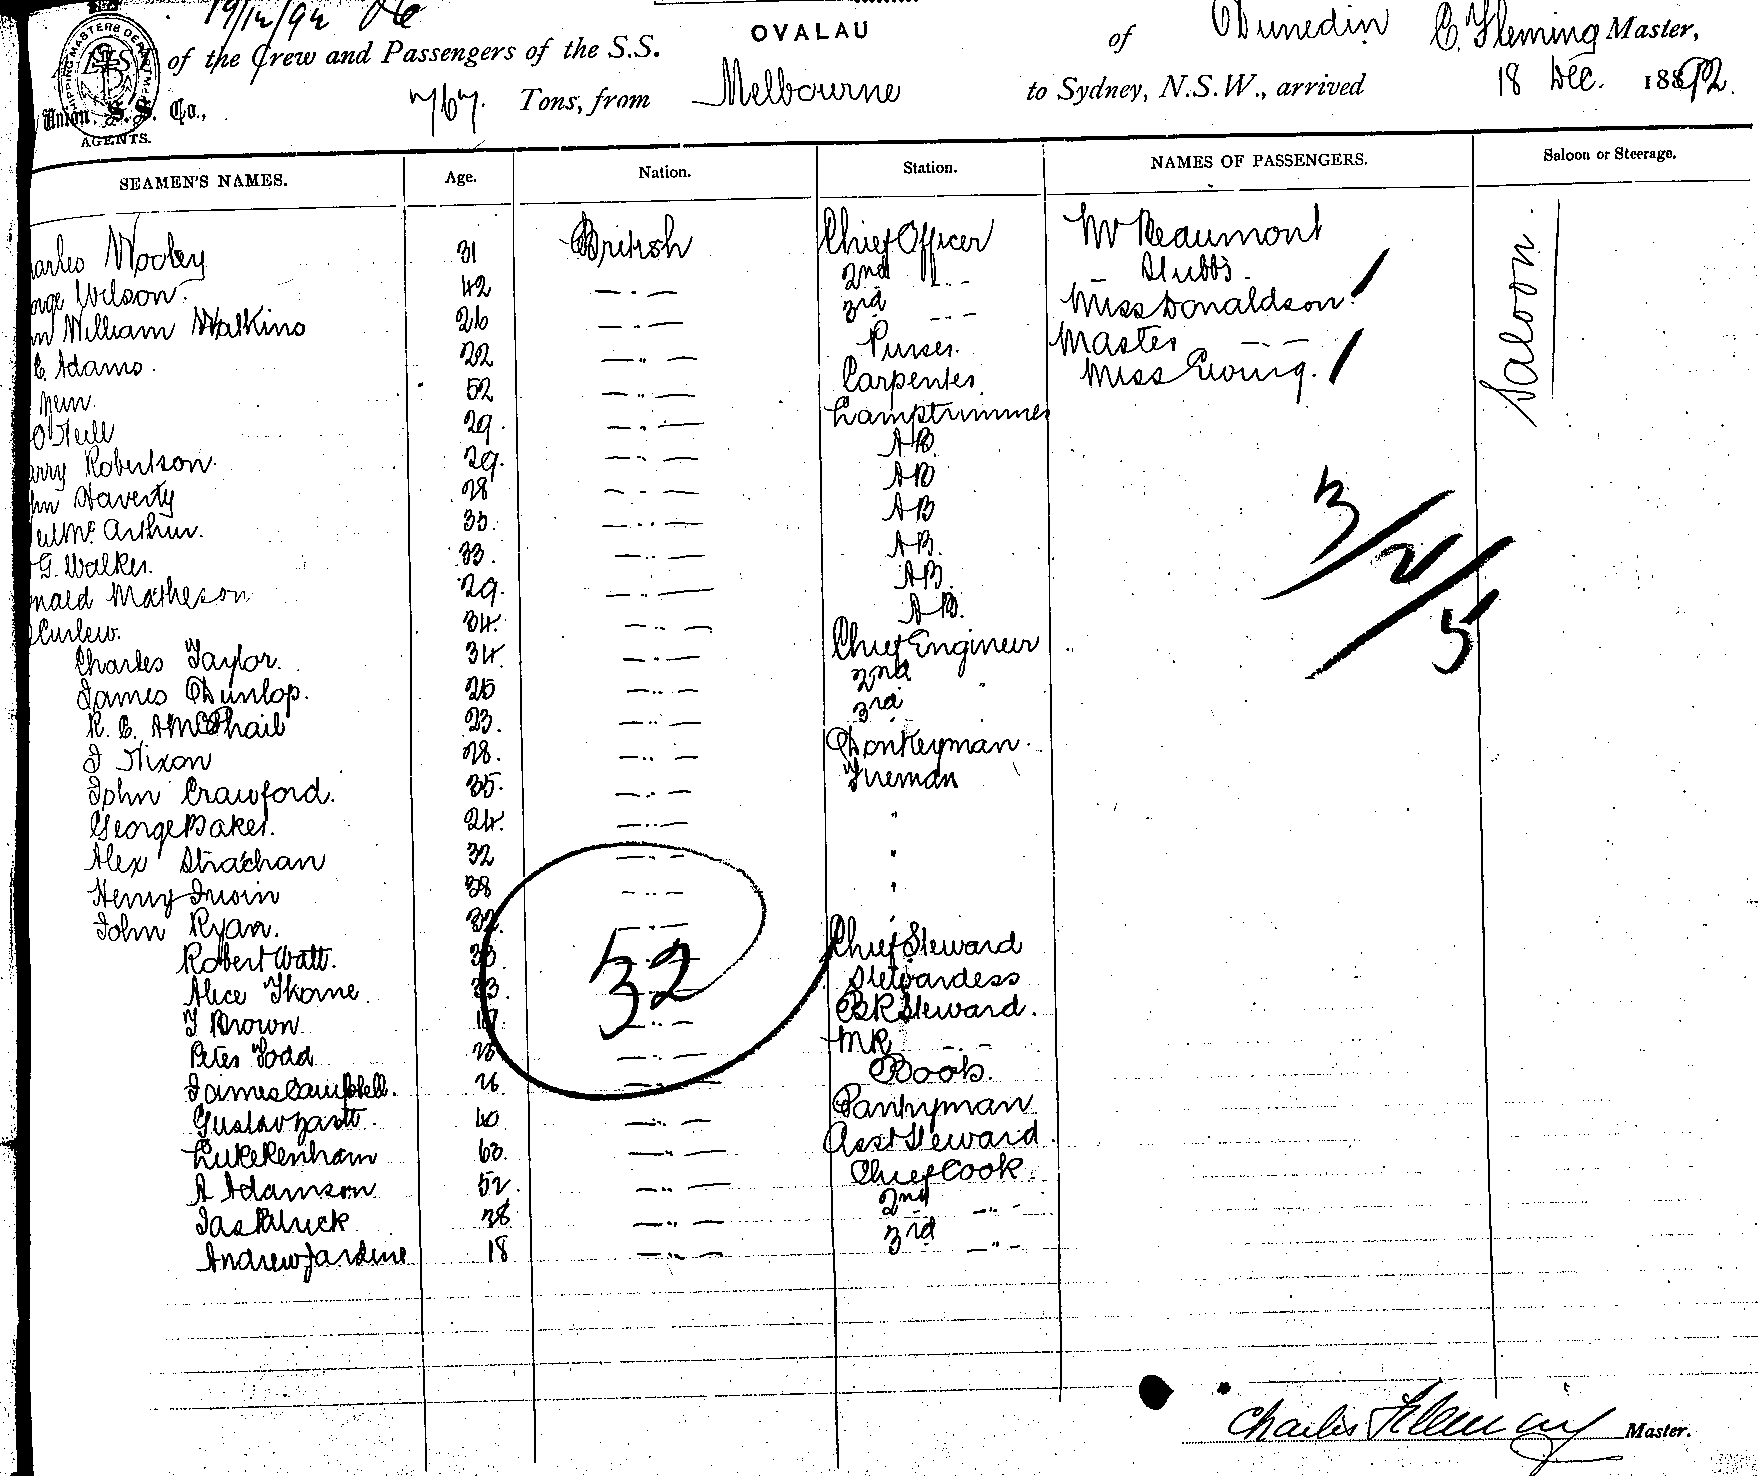 19/12/92
OVALAU
of the Crew and Passengers of the S.S. of Dunedin C. Fleming Master,
767. Tons, from Melbourne to Sydney, N.S.W., arrived 18 Dec. 1892
Union S. S. Co.,
AGENTS.
SEAMEN'S NAMES. Age. Nation. Station. NAMES OF PASSENGERS. Saloon or Steerage.
Wooley 31 British Chief Officer Mr Beaumont Saloon.
Wilson. 42 — " — 2nd " — Stubbs.
William Watkins 26 — " — 3rd " Miss Donaldson
C. Adams. 22 — " — Purser. Master — " —
52 — " — Carpenter Miss Ewing.
O'Neill 29. — " — Lamptrimmer
Robertson. 29. — " — AB.
Haverty 28 — " — AB
McArthur. 35. — " — AB
G. Walker. 33. — " — AB.
Matheson 29. — " — AB.
Curlew. 34. — " — AB.
3/2/5
Charles Taylor. 34 — " — Chief Engineer
James Dunlop. 25 — " — 2nd "
R. C. McPhail 23. — " — 3rd
J Nixon 28. — " — Donkeyman.
John Crawford. 35. — " — Fireman
George Baker. 24. — " — "
Alex Strachan 32 — " — "
Henry Irwin 38 — " — "
John Ryan. 32. — " — "
Robert Watt. 33. Chief Steward
32
Alice Thorne. 33. Stewardess
J Brown. — " — BR Steward.
Peter Todd — " — MR — " —
James Campbell. 26 — " —
Gustav — " — Pantryman
Luke Renham 60. — " — Asst Steward.
A Adamson 52. — " — Chief Cook.
Jas 38 — " — 2nd — " —
Andrew Jardine 18 — " — 3rd — " —
Charles Fleming Master.